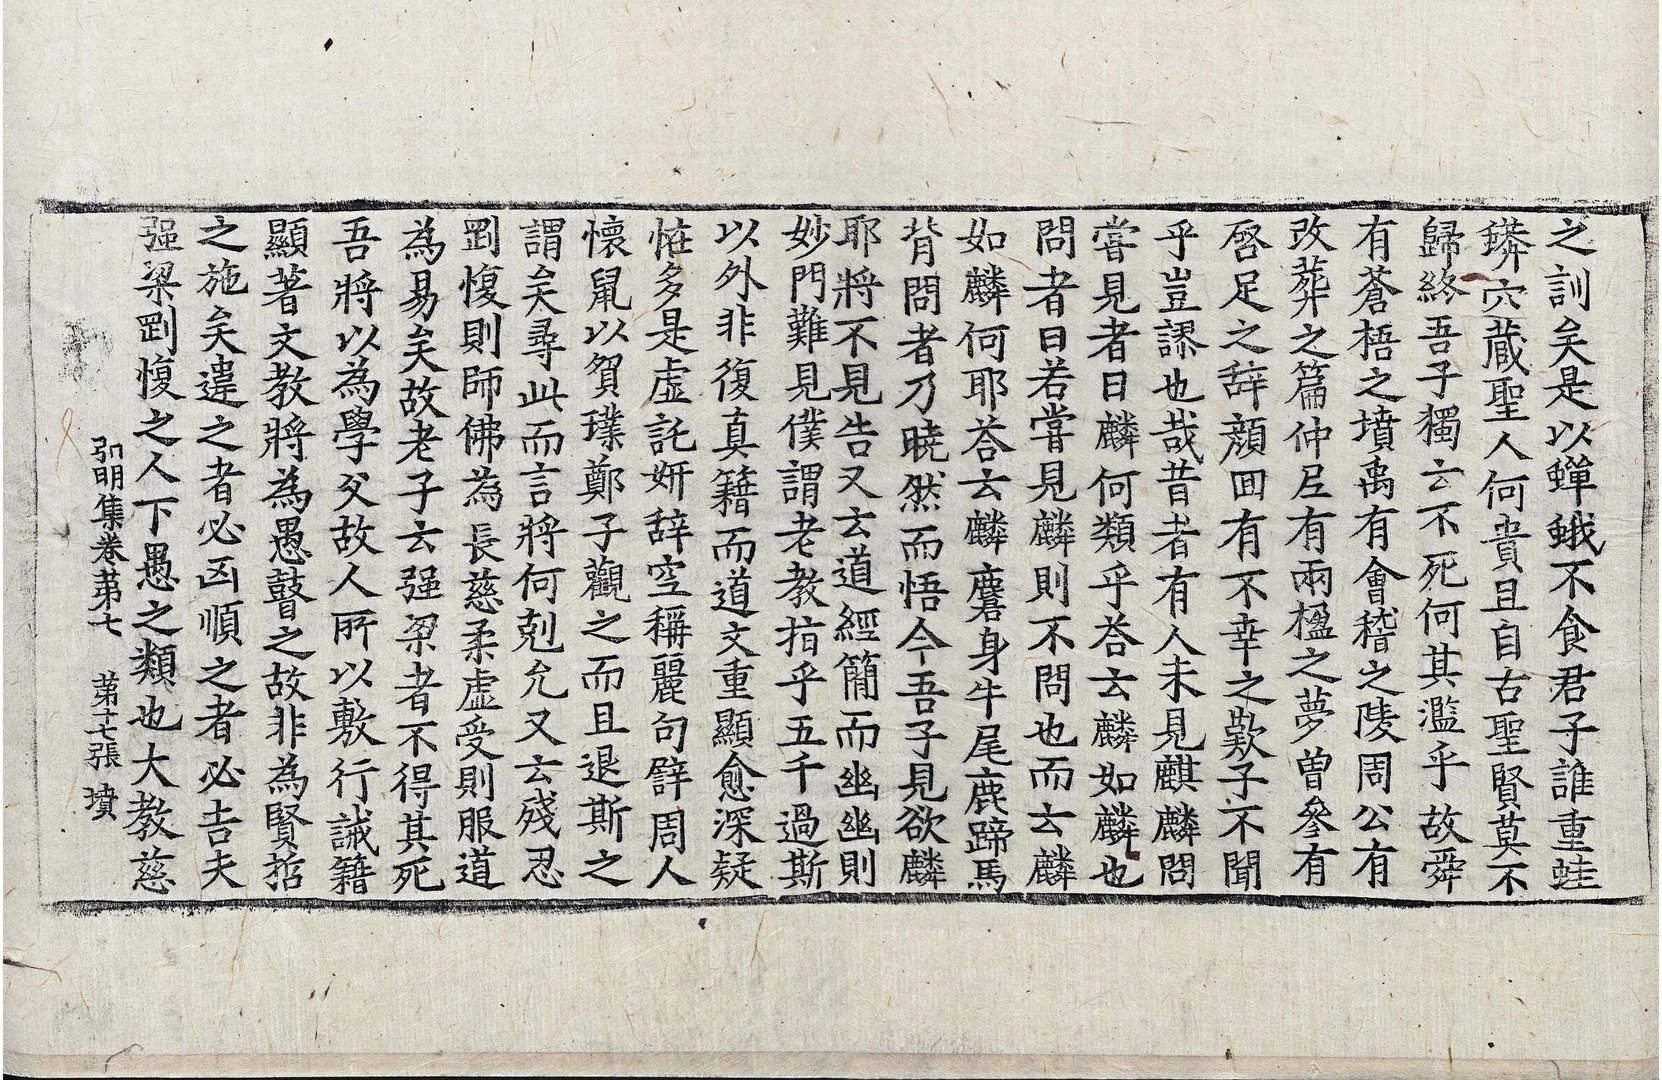 之訓矣是以蟬蛾不食君子誰重蛙
蟒穴藏聖人何貴且自古聖賢莫不
歸終吾子獨云不死何其濫乎故舜
有蒼梧之墳禹有會稽之陵周公有
改葬之篇仲尼有兩楹之夢曾參有
啓足之辞顏回有不幸之歎子不聞
乎豈謬也哉昔者有人未見麒麟問
嘗見者曰麟何類乎荅云麟如麟也
問者曰若嘗見麟則不問也而云麟
如麟何耶荅云麟麏身牛尾鹿蹄馬
背問者乃曉然而悟今吾子見欲麟
耶將不見告又云道經簡而幽幽則
妙門難見僕謂老教指乎五千過斯
以外非復真籍而道文重顯愈深疑
恠多是虛託姸辞空稱麗句辟周人
懷鼠以賀璞鄭子觀之而且退斯之
謂矣尋此而言將何剋允又云殘忍
剛愎則師佛為長慈柔虛受則服道
為易矣故老子云强梁者不得其死
吾將以為學父故人所以敷行誡籍
顯著文教將為愚瞽之故非為賢哲
之施矣違之者必凶順之者必吉夫
强梁剛愎之人下愚之類也大教慈
弘明集卷第七 第十七張 墳